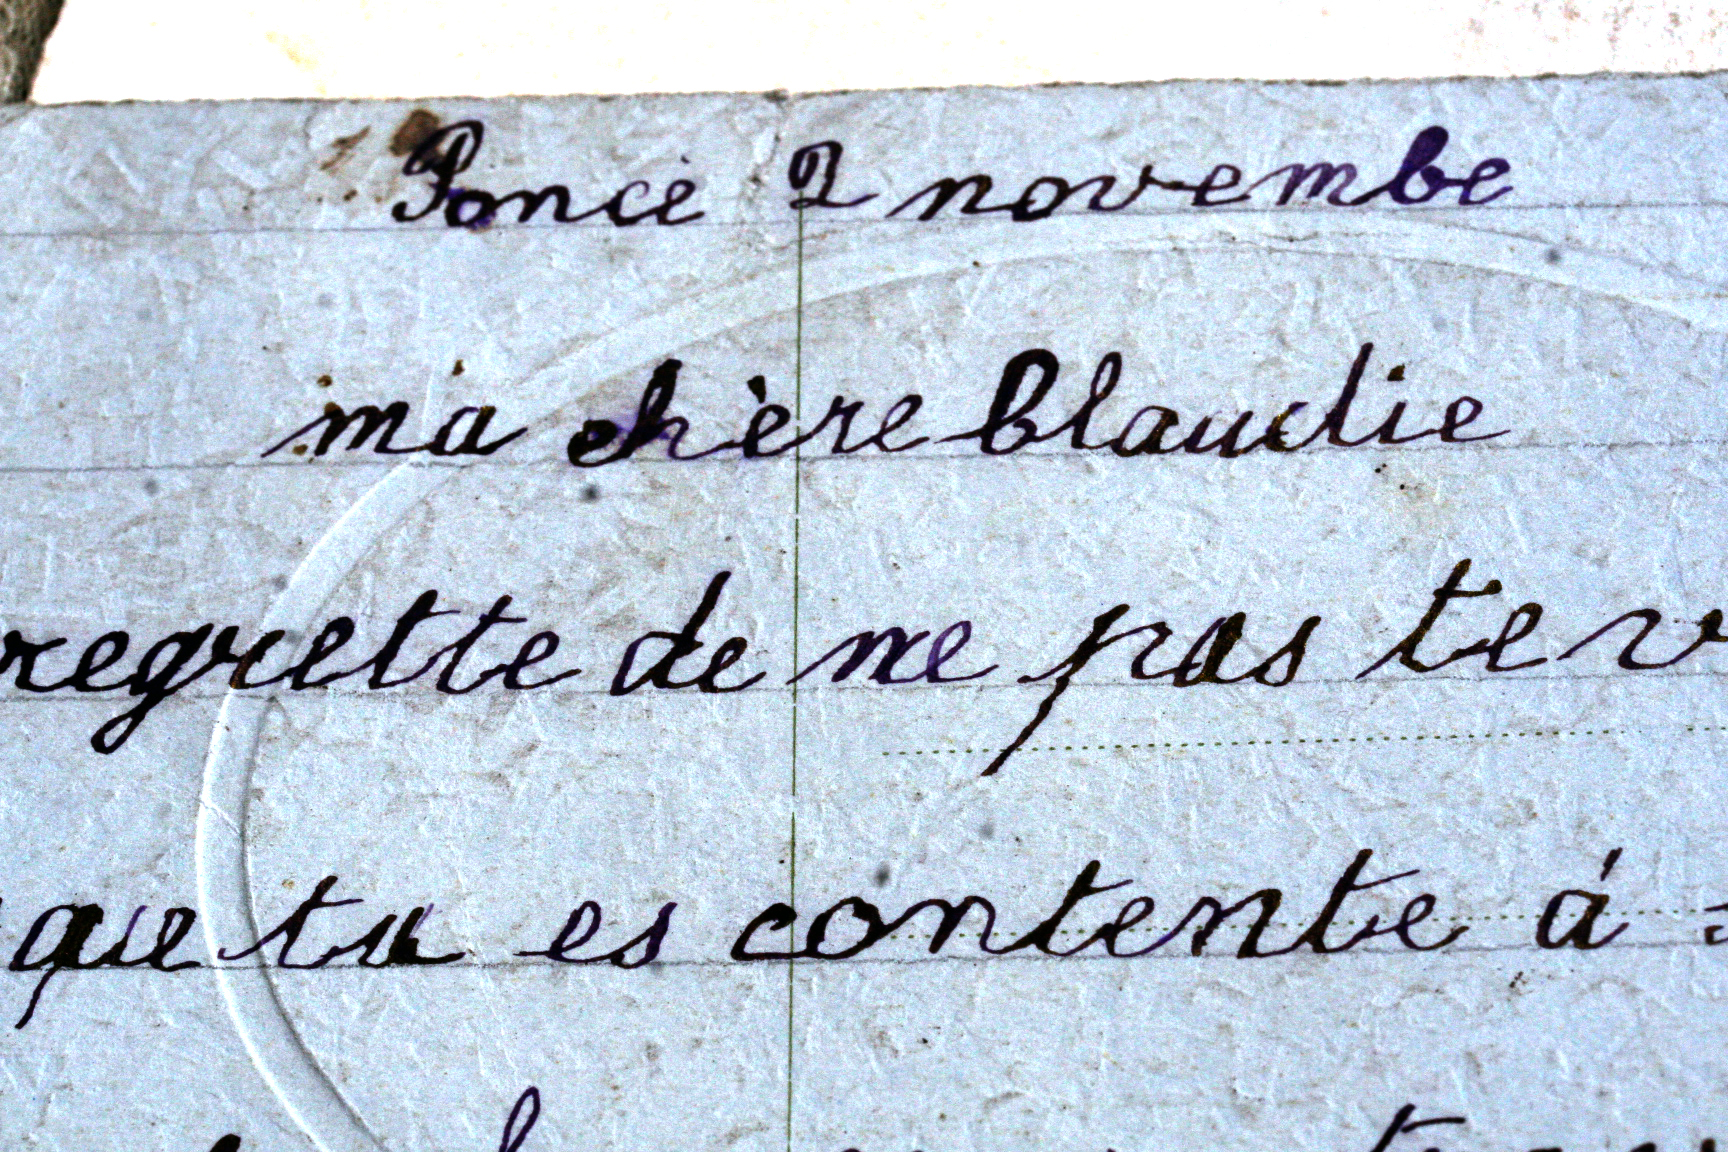 Poncé 2 novembe
ma chère Claudie
regrette de ne pas te
que tu es contente à